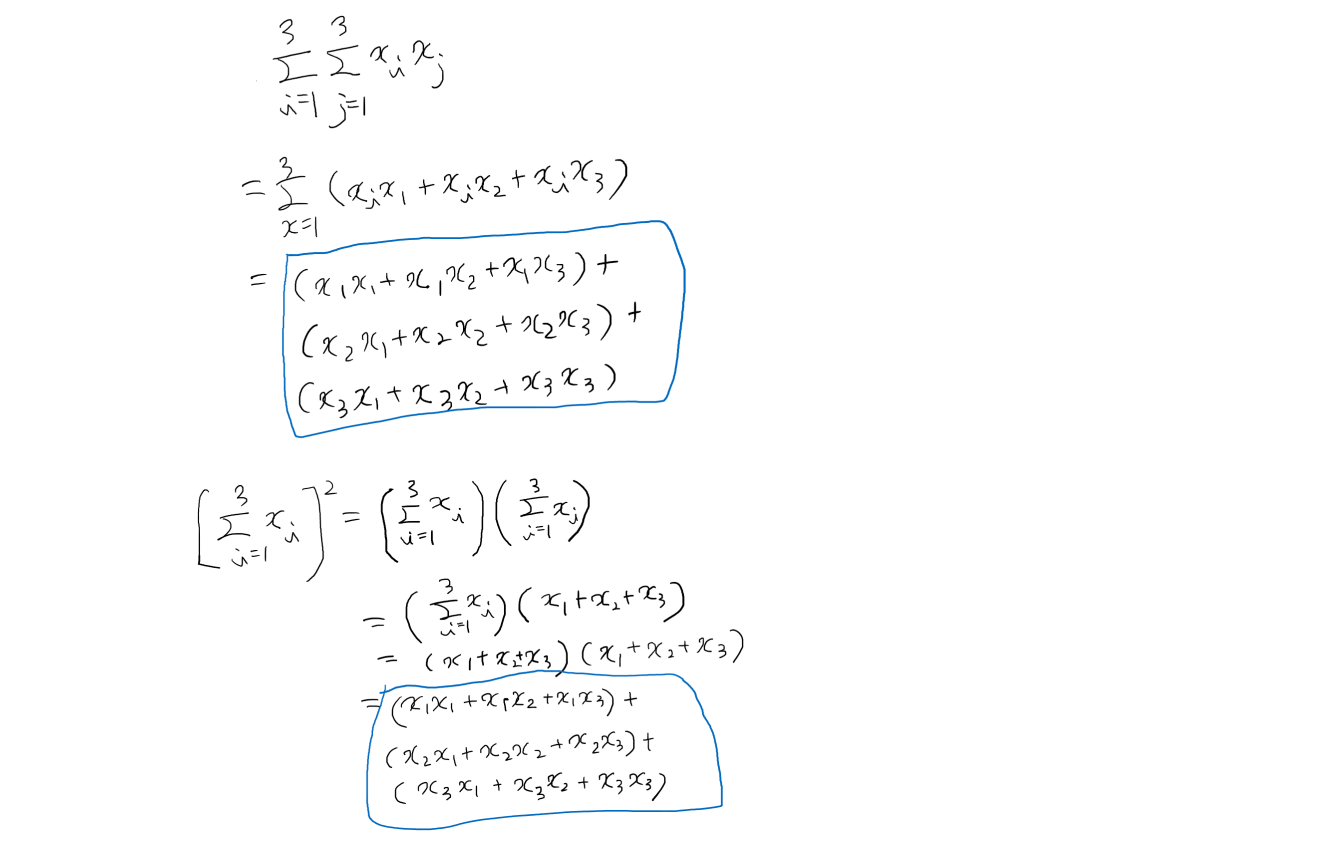 $\sum_{i=1}^{3} \sum_{j=1}^{3} x_i x_j$
$= \sum_{x=1}^{3} (x_i x_1 + x_i x_2 + x_i x_3)$
$= (x_1 x_1 + x_1 x_2 + x_1 x_3) +$
$(x_2 x_1 + x_2 x_2 + x_2 x_3) +$
$(x_3 x_1 + x_3 x_2 + x_3 x_3)$
$\left[ \sum_{i=1}^{3} x_i \right]^2 = \left( \sum_{i=1}^{3} x_i \right) \left( \sum_{i=1}^{3} x_i \right)$
$= \left( \sum_{i=1}^{3} x_i \right) (x_1 + x_2 + x_3)$
$= (x_1 + x_2 + x_3)(x_1 + x_2 + x_3)$
$= (x_1 x_1 + x_1 x_2 + x_1 x_3) +$
$(x_2 x_1 + x_2 x_2 + x_2 x_3) +$
$(x_3 x_1 + x_3 x_2 + x_3 x_3)$